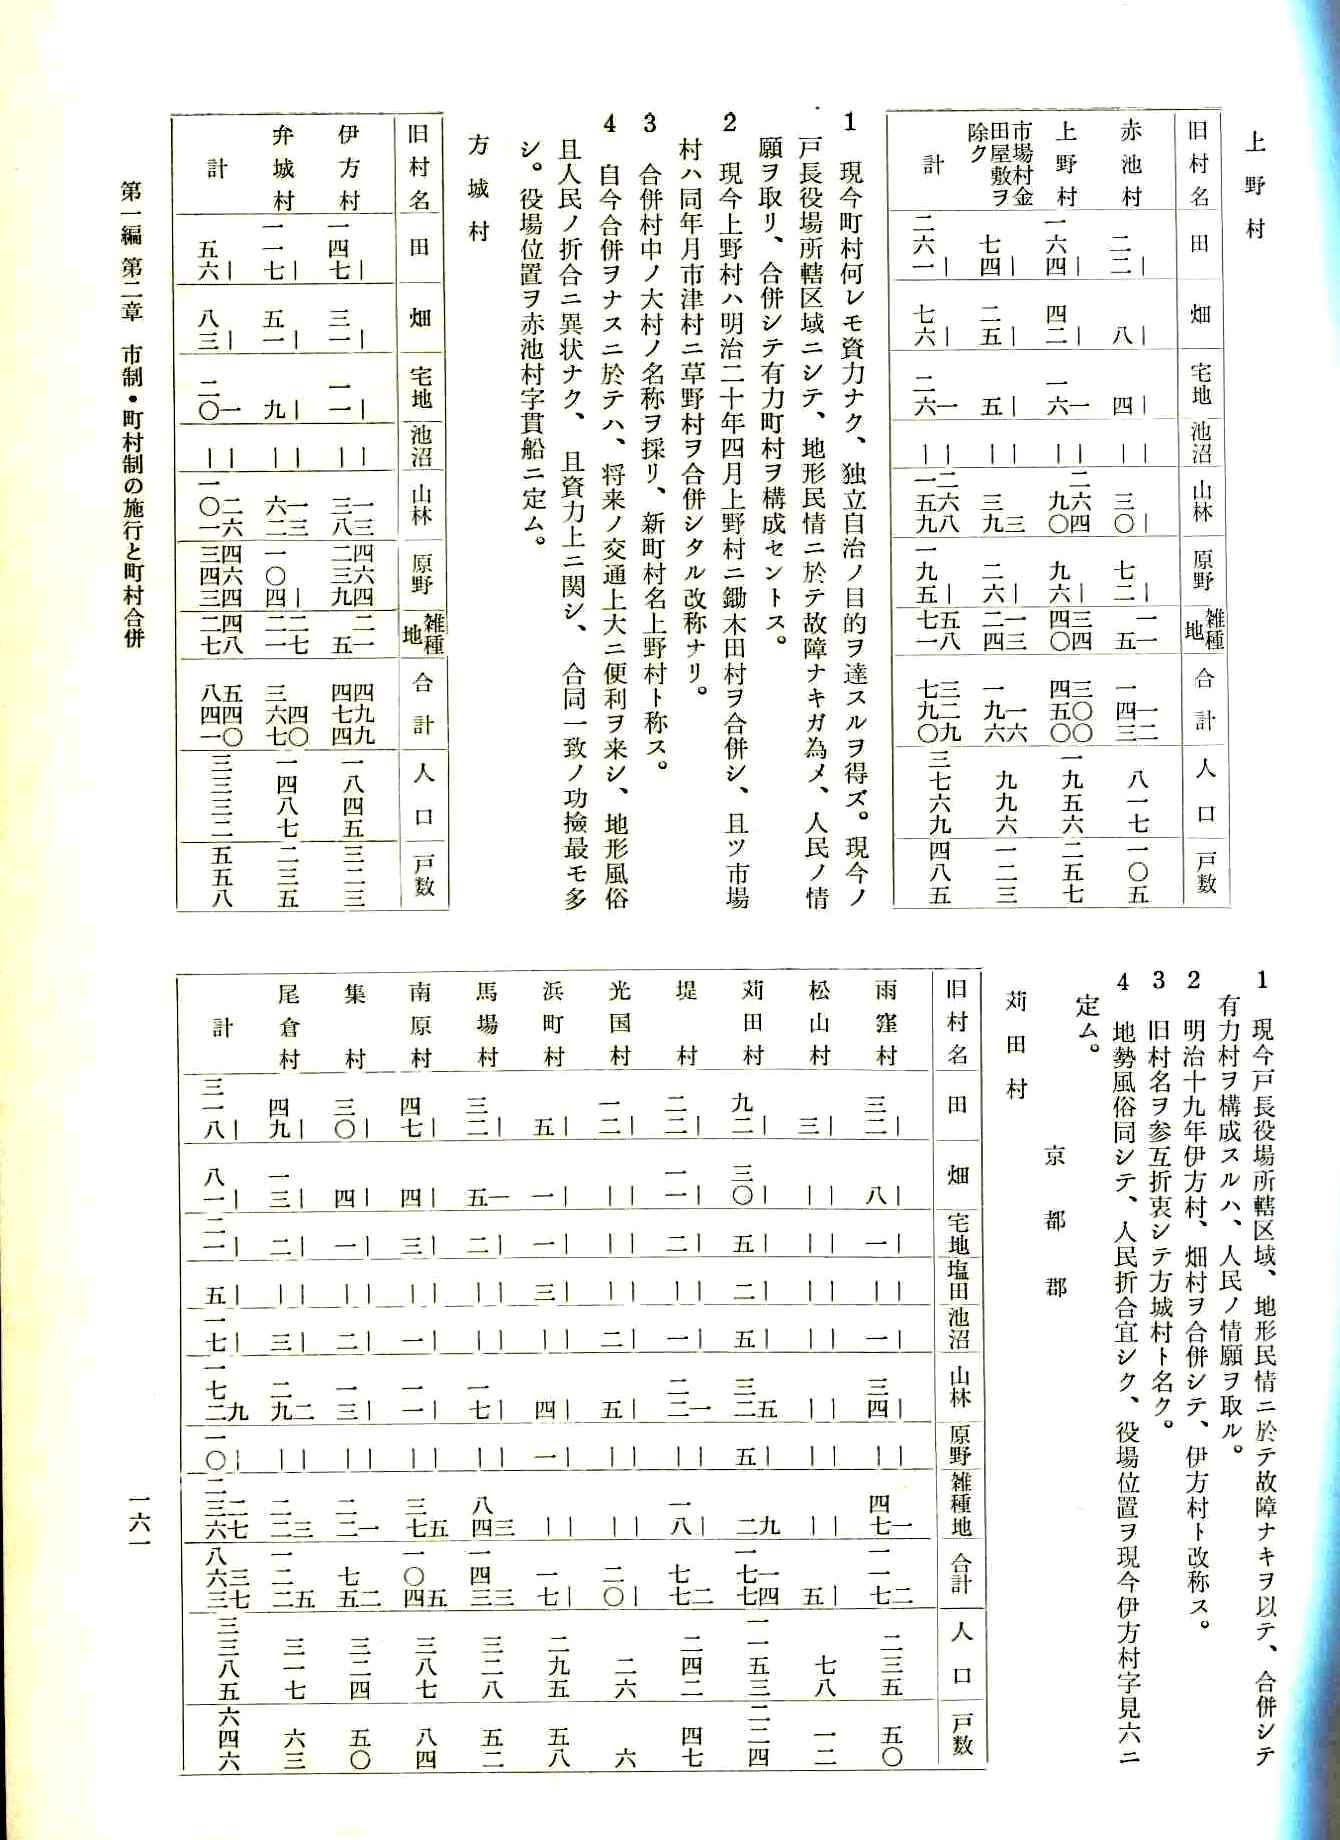 上野村
旧村名 田 畑 宅地 池沼 山林 原野 雑種地 合計 人口 戸数
赤池村 ― 二二 ― 八 ― 四 ― ― ― 三〇 ― 七二 一一 五 一二 一四三 八一七 一〇五
上野村 ― 一六四 ― 四二 一 一六 ― ― 二六四 九〇 ― 九六 三四 四〇 三〇〇 四五〇 一九五六 二五七
市場村金田屋敷ヲ除ク ― 七四 ― 二五 ― 五 ― ― 三 三九 ― 二六 一三 二四 一六 一九六 九九六 一二三
計 ― 二六一 ― 七六 一 二六 ― ― 二六八 一五九 ― 一九五 五八 七一 三二九 七九〇 三七六九 四八五
1 現今町村何レモ資力ナク、独立自治ノ目的ヲ達スルヲ得ズ。現今ノ
戸長役場所轄区域ニシテ、地形民情ニ於テ故障ナキガ為メ、人民ノ情
願ヲ取リ、合併シテ有力町村ヲ構成セントス。
2 現今上野村ハ明治二十年四月上野村ニ鋤木田村ヲ合併シ、且ツ市場
村ハ同年月市津村ニ草野村ヲ合併シタル改称ナリ。
3 合併村中ノ大村ノ名称ヲ採リ、新町村名上野村ト称ス。
4 自今合併ヲナスニ於テハ、将来ノ交通上大ニ便利ヲ来シ、地形風俗
且人民ノ折合ニ異状ナク、且資力上ニ関シ、合同一致ノ功撿最モ多
シ。役場位置ヲ赤池村字貫船ニ定ム。
方城村
旧村名 田 畑 宅地 池沼 山林 原野 雑種地 合計 人口 戸数
伊方村 ― 一四七 ― 三一 ― 一一 ― ― 一三 三八 四六四 二三九 二一 五 四九九 四七四 一八四五 三二三
弁城村 ― 一一七 ― 五一 ― 九 ― ― 一三 六二 ― 一〇四 二七 二一 四〇 三六七 一四八七 二三五
計 ― 五六 ― 八三 一 二〇 ― ― 二六 一〇一 四六四 三四三 四八 二七 五四〇 八四一 三三三二 五五八
1 現今戸長役場所轄区域、地形民情ニ於テ故障ナキヲ以テ、合併シテ
有力村ヲ構成スルハ、人民ノ情願ヲ取ル。
2 明治十九年伊方村、畑村ヲ合併シテ、伊方村ト改称ス。
3 旧村名ヲ参互折衷シテ方城村ト名ク。
4 地勢風俗同シテ、人民折合宜シク、役場位置ヲ現今伊方村字見六ニ
定ム。
京都郡
苅田村
旧村名 田 畑 宅地 塩田 池沼 山林 原野 雑種地 合計 人口 戸数
雨窪村 ― 三二 ― 八 ― 一 ― ― ― 一 ― 三四 ― ― 一 四七 二 一一七 二三五 五〇
松山村 ― 三 ― ― ― ― ― ― ― ― ― ― ― ― ― ― ― 五 七八 一二
苅田村 ― 九二 ― 三〇 ― 五 ― 二 ― 五 五 三二 ― 五 九 二 一四 一七七 一一五三 二二四
堤村 ― 二二 ― 一一 ― 二 ― ― ― 一 一 二二 ― ― ― 一八 二 七七 二四二 四七
光国村 ― 一二 ― ― ― ― ― ― ― 二 ― 五 ― ― ― ― ― 二〇 二六 六
浜町村 ― 五 ― 一 ― 一 ― 三 ― ― ― 四 ― 一 ― ― ― 一七 二九五 五八
馬場村 ― 三二 一 五 ― 二 ― ― ― ― ― 一七 ― ― 三 八四 三 一四三 三二八 五二
南原村 ― 四七 ― 四 ― 三 ― ― ― 一 ― 一一 ― ― 五 三七 五 一〇四 三八七 八四
集村 ― 三〇 ― 四 ― 一 ― ― ― 二 ― 一三 ― ― 一 二二 二 七五 三二四 五〇
尾倉村 ― 四九 ― 一三 ― 二 ― ― ― 三 二 二九 ― ― 三 二二 五 一二二 三一七 六三
計 ― 三一八 ― 八一 ― 二一 ― 五 ― 一七 九 一七二 ― 一〇 二七 二三六 三七 八六三 三三八五 六四六
第一編 第二章 市制・町村制の施行と町村合併
一六一